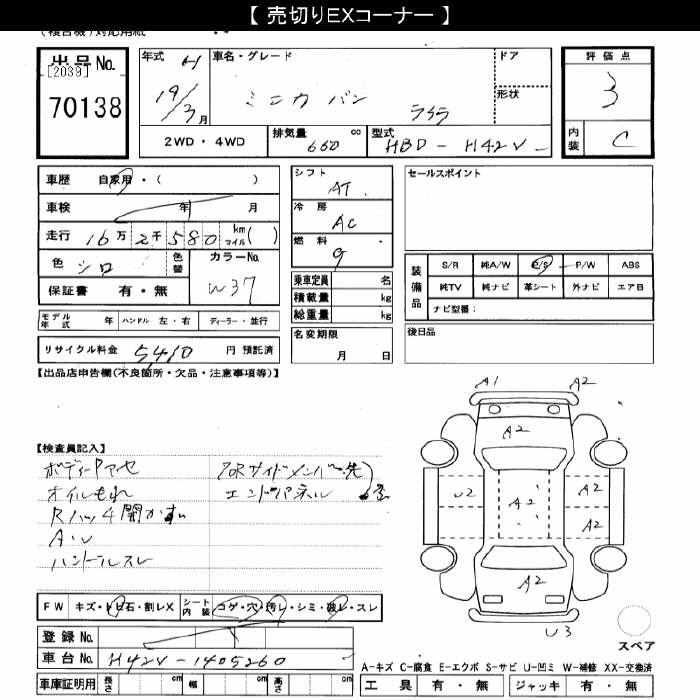 【 売切りEXコーナー 】
(複合機)対応用紙
出品No.
[2039]
70138
年式 H
19/3月
車名・グレード
ミニカ バン ライラ
ドア
形状
2WD・4WD
排気量 660 cc
型式 HBD - H42V -
評価点
3
内装 C
車歴 自家用・( )
車検 年 月
走行 16万2千580 km マイル( )
色 シロ
色替
カラーNo.
W37
保証書 有・無
モデル年式 年 ハンドル 左・右 ディーラー・並行
リサイクル料金 5,410 円 預託済
シフト AT
冷房 AC
燃料 G
乗車定員 名
積載量 kg
総重量 kg
名変期限
月 日
セールスポイント
装備品
S/R 純A/W P/S P/W ABS
純TV 純ナビ 革シート 外ナビ エアB
ナビ型番:
後日品
【出品店申告欄(不良箇所・欠品・注意事項等)】
【検査員記入】
オイルもれ
A・U
ハンドルスレ
エンドパネル
A1 A2
A2
U2 A2 A2
A2
A2
U3
スペア
FW キズ・トビ石・割レX
シート内装 コゲ・穴・汚レ・シミ・破レ・スレ
登録No.
車台No. H42V-1405260
車庫証明用 長さ cm 幅 cm 高さ cm
A-キズ C-腐食 E-エクボ S-サビ U-凹ミ W-補修 XX-交換済
工具 有・無 ジャッキ 有・無